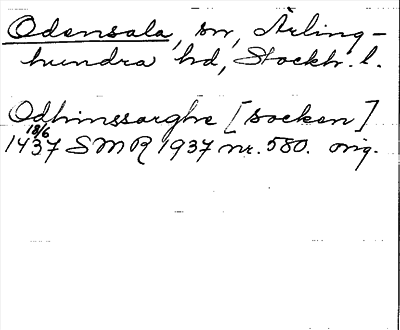 Odensala, sn, Ärling-
hundra hd, Stockh. l.
Odhinssarghe [socken]
18/6
1437 SMR 1937 nr. 580. orig.